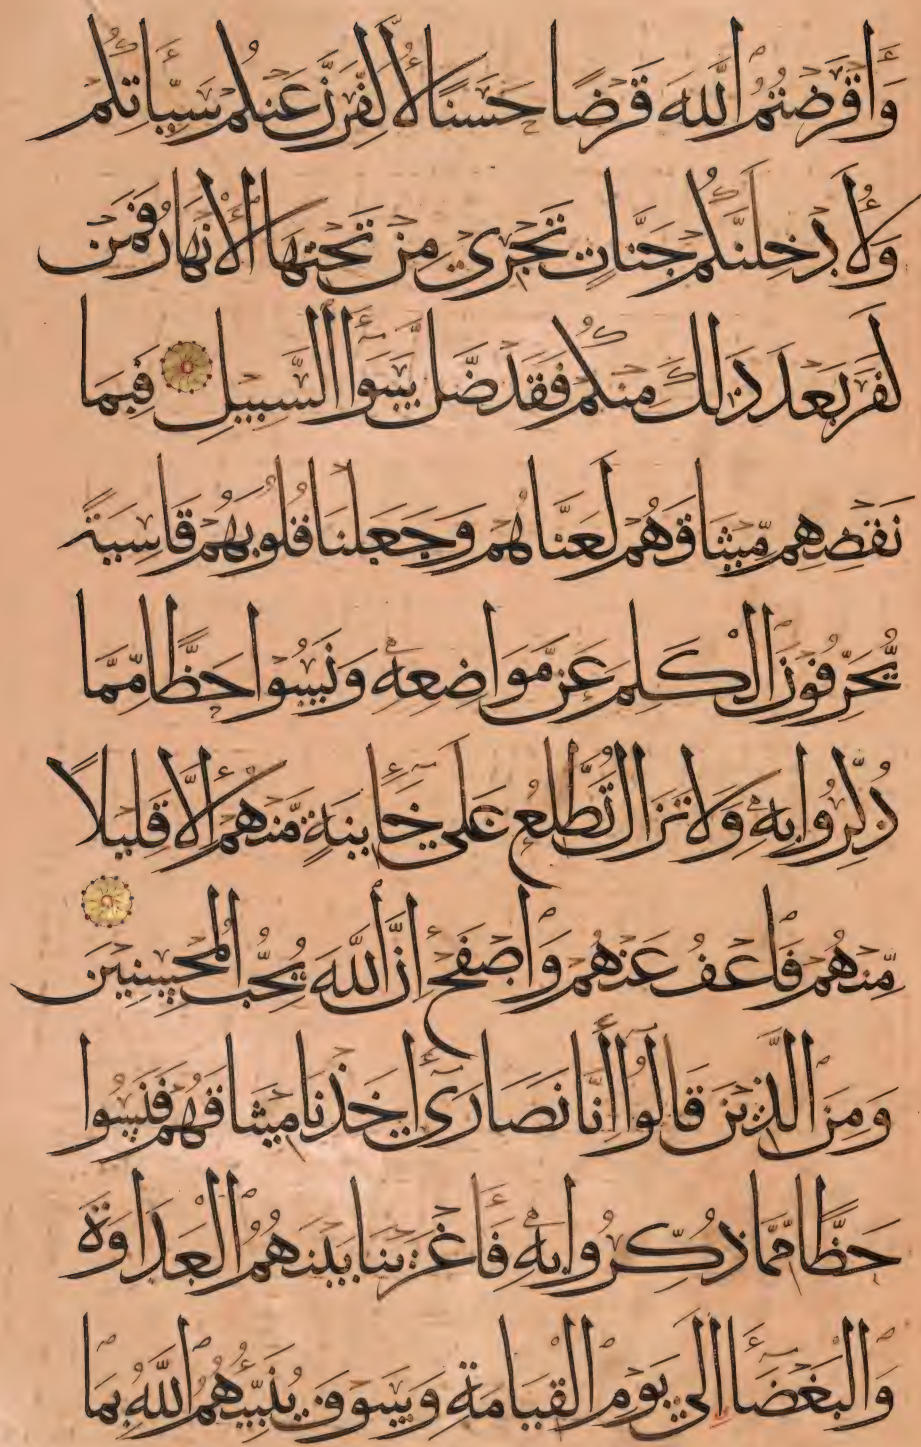 وَأَقْرَضْتُمُ اللَّهَ قَرْضًا حَسَنًا لَأُكَفِّرَنَّ عَنْكُمْ سَيِّئَاتِكُمْ
وَلَأُدْخِلَنَّكُمْ جَنَّاتٍ تَجْرِي مِنْ تَحْتِهَا الْأَنْهَارُ فَمَنْ
كَفَرَ بَعْدَ ذَلِكَ مِنْكُمْ فَقَدْ ضَلَّ سَوَاءَ السَّبِيلِ فَبِمَا
نَقْضِهِمْ مِيثَاقَهُمْ لَعَنَّاهُمْ وَجَعَلْنَا قُلُوبَهُمْ قَاسِيَةً
يُحَرِّفُونَ الْكَلِمَ عَنْ مَوَاضِعِهِ وَنَسُوا حَظًّا مِمَّا
ذُكِّرُوا بِهِ وَلَا تَزَالُ تَطَّلِعُ عَلَى خَائِنَةٍ مِنْهُمْ إِلَّا قَلِيلًا
مِنْهُمْ فَاعْفُ عَنْهُمْ وَاصْفَحْ إِنَّ اللَّهَ يُحِبُّ الْمُحْسِنِينَ
وَمِنَ الَّذِينَ قَالُوا إِنَّا نَصَارَى أَخَذْنَا مِيثَاقَهُمْ فَنَسُوا
حَظًّا مِمَّا ذُكِّرُوا بِهِ فَأَغْرَيْنَا بَيْنَهُمُ الْعَدَاوَةَ
وَالْبَغْضَاءَ إِلَى يَوْمِ الْقِيَامَةِ وَسَوْفَ يُنَبِّئُهُمُ اللَّهُ بِمَا